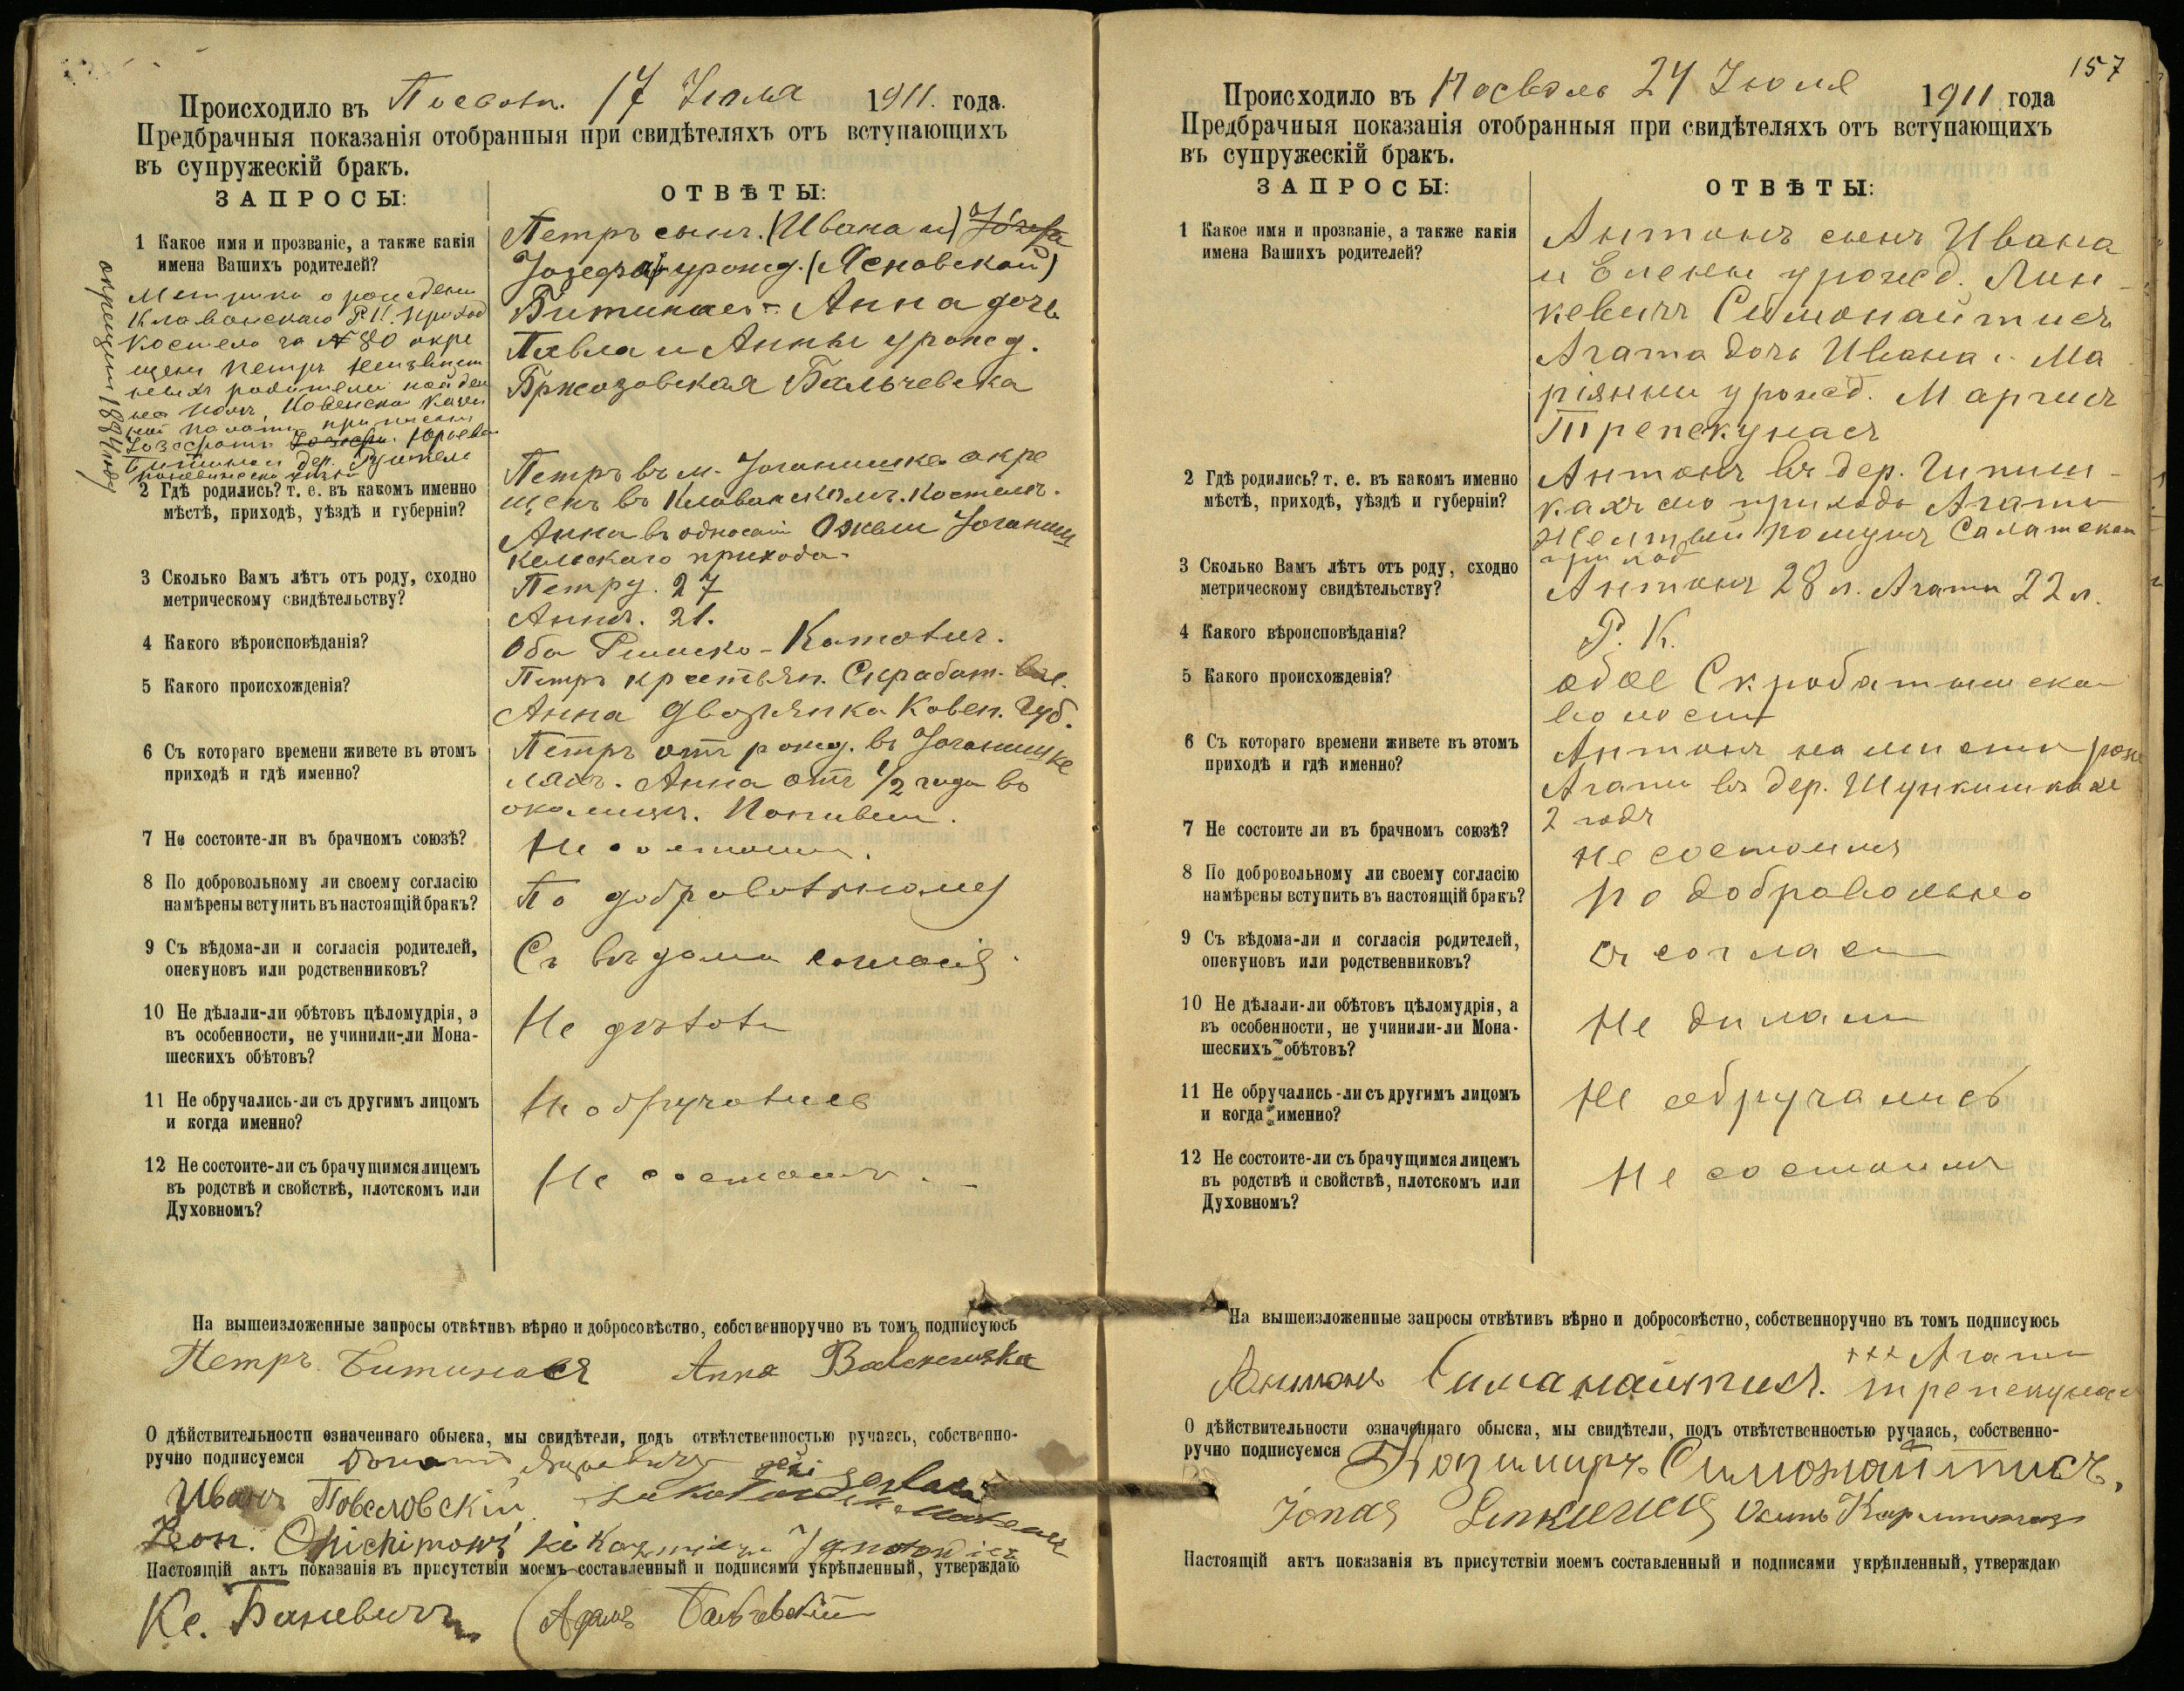 Происходило въ Посволь. 17 Іюля 1911. года.
Предбрачныя показанія отобранныя при свидѣтеляхъ отъ вступающихъ
въ супружескій бракъ.
ЗАПРОСЫ:
ОТВѢТЫ:
1 Какое имя и прозваніе, а также какія
имена Вашихъ родителей?
Петръ сынъ. (Ивана и)
Іозефа урожд. (Ясновской)
Битинасъ = Анна дочь
Павла и Анны урожд.
Бржозовская Бальчевска
Метрика о рождени
Клаванскаго Р.К. приход
костела за № 80 окре
щенъ Петръ
родители найден
окрещенъ 1884 году
2 Гдѣ родились? т. е. въ какомъ именно
мѣстѣ, приходѣ, уѣздѣ и губерніи?
Петръ въ м. Іоганишке окре
щенъ въ Клаванскомъ. костелѣ.
Анна въ Іоганиш
кельскаго прихода.
3 Сколько Вамъ лѣтъ отъ роду, сходно
метрическому свидѣтельству?
Петру. 27
Анна. 21.
4 Какого вѣроисповѣданія?
Оба Римско-Католич.
5 Какого происхожденія?
Петръ крестьян. Скрабат.
Анна дворянка Ковен. Губ.
6 Съ котораго времени живете въ этомъ
приходѣ и гдѣ именно?
Петръ отъ рожд. въ Іоганишке
ляхъ. Анна отъ 1/2 года въ
7 Не состоите-ли въ брачномъ союзѣ?
Не состоимъ.
8 По добровольному ли своему согласію
намѣрены вступить въ настоящій бракъ?
По добровольному
9 Съ вѣдома-ли и согласія родителей,
опекуновъ или родственниковъ?
Съ вѣдома согласія.
10 Не дѣлали-ли обѣтовъ цѣломудрія, а
въ особенности, не учинили-ли Мона-
шескихъ обѣтовъ?
Не дѣлали
11 Не обручались-ли съ другимъ лицомъ
и когда именно?
Не обручались
12 Не состоите-ли съ брачущимся лицемъ
въ родствѣ и свойствѣ, плотскомъ или
Духовномъ?
Не состоимъ.
На вышеизложенные запросы отвѣтивъ вѣрно и добросовѣстно, собственноручно въ томъ подписуюсь
Петръ Битинасъ Анна Balcewska
О дѣйствительности означеннаго обыска, мы свидѣтели, подъ отвѣтственностью ручаясь, собственно-
ручно подписуемся
Иванъ
Настоящій актъ показанія въ присутствіи моемъ составленный и подписями укрѣпленный, утверждаю
Кс. Баневичъ (Адамъ Бальчевскій
157
Происходило въ Посволь 24 Іюля 1911 года
Предбрачныя показанія отобранныя при свидѣтеляхъ отъ вступающихъ
въ супружескій бракъ.
ЗАПРОСЫ:
ОТВѢТЫ:
1 Какое имя и прозваніе, а также какія
имена Вашихъ родителей?
Антонъ сынъ Ивана
и Елены урожд. Лин-
кевичъ Симонайтисъ
Агата дочь Ивана и Ма
ріянны урожд. Маргисъ
Трепекунасъ
2 Гдѣ родились? т. е. въ какомъ именно
мѣстѣ, приходѣ, уѣздѣ и губерніи?
Антонъ въ дер.
кахъ прихода Агата
Салатскаго
приход
3 Сколько Вамъ лѣтъ отъ роду, сходно
метрическому свидѣтельству?
Антонъ 28 л. Агата 22 л.
4 Какого вѣроисповѣданія?
Р. К.
5 Какого происхожденія?
обое Скробатышска
волости
6 Съ котораго времени живете въ этомъ
приходѣ и гдѣ именно?
Антонъ на мѣстѣ рож
Агата въ дер.
2 годъ
7 Не состоите ли въ брачномъ союзѣ?
Не состоимъ
8 По добровольному ли своему согласію
намѣрены вступить въ настоящій бракъ?
По добровольно
9 Съ вѣдома-ли и согласія родителей,
опекуновъ или родственниковъ?
съ согласи
10 Не дѣлали-ли обѣтовъ цѣломудрія, а
въ особенности, не учинили-ли Мона-
шескихъ обѣтовъ?
Не дилали
11 Не обручались-ли съ другимъ лицомъ
и когда именно?
Не обручались
12 Не состоите-ли съ брачущимся лицемъ
въ родствѣ и свойствѣ, плотскомъ или
Духовномъ?
Не состоимъ
На вышеизложенные запросы отвѣтивъ вѣрно и добросовѣстно, собственноручно въ томъ подписуюсь
Антонъ Симанайтисъ. +++ Агата
Трепекунас
О дѣйствительности означеннаго обыска, мы свидѣтели, подъ отвѣтственностью ручаясь, собственно-
ручно подписуемся Казимиръ Симонайтисъ,
Jonas
Настоящій актъ показанія въ присутствіи моемъ составленный и подписями укрѣпленный, утверждаю